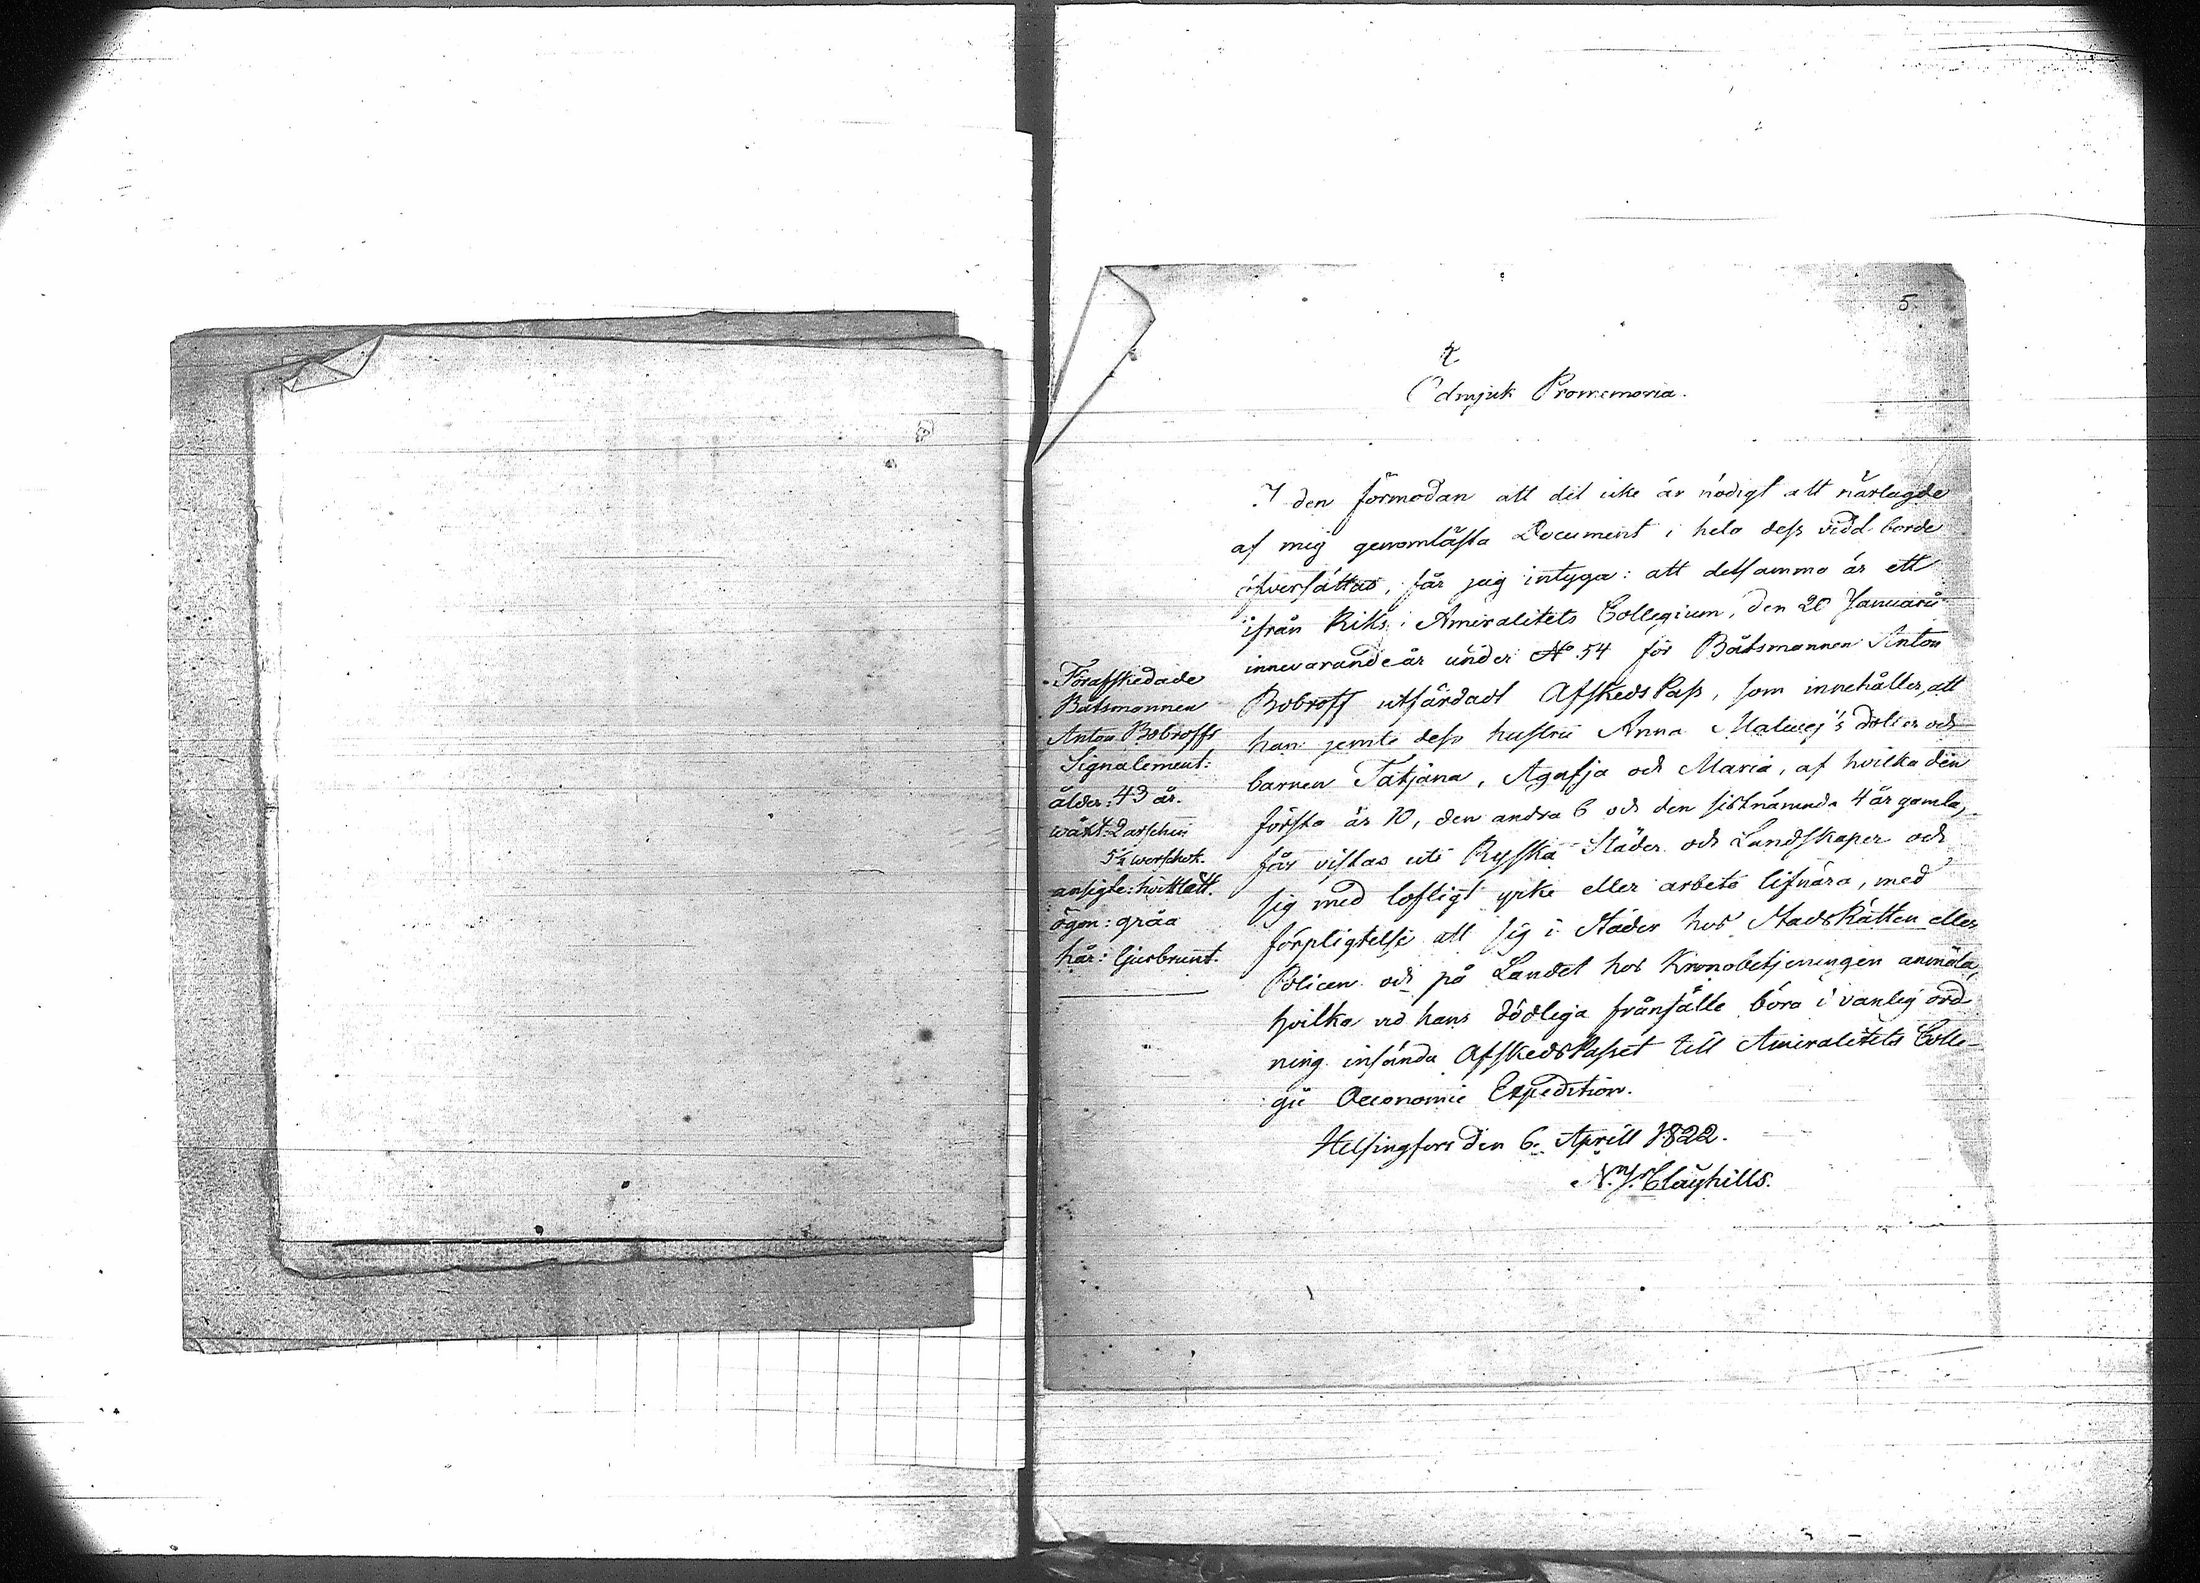 5.
Ödmjuk Promemoria.
I den förmodan att det icke är nödigt att närlagde
af mig genomlästa Document i hela dess vidd borde
öfversättas, får jag intyga: att detsamma är ett
ifrån Riks Amiralitets Collegium, den 20 Januarii
innevarande år under No. 54 för Båtsmannen Anton
Bobroff utfärdadt AfskedsPass, som innehåller, att
han jemte dess hustru Anna Matwej's dotter och
barnen Tatjana, Agafja och Maria, af hvilka den
första är 10, den andra 6 och den sistnämnda 4 år gamla,
får vistas uti Ryska Städer och Landskaper och
sig med lofligt yrke eller arbete lifnära, med
förpligtelse att sig i Städer hos StadsRätten eller
Policen och på Landet hos Kronobetjeningen anmäla,
hvilka vid hans dödliga frånfälle böra i vanlig ord-
ning insända AfskedsPasset till Amiralitets Colle-
gii Oeconomie Expedition.
Helsingfors den 6. Aprill 1822.
N. J. Clayhills.
Förafskedade
Båtsmannen
Anton Bobroffs
Signalement:
ålder: 43 år.
wäxt: 2 arschin
5½ werschok.
ansigte: hvitlätt.
ögon: gråa
hår: ljusbrunt.